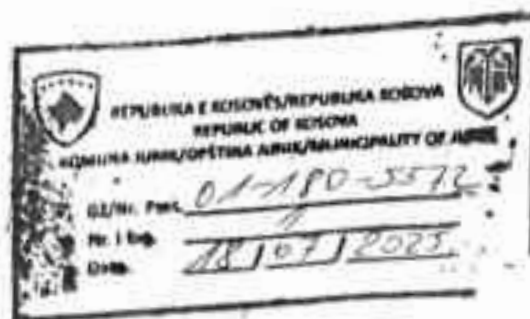 REPUBLIKA E KOSOVËS/REPUBLIKA KOSOVA
REPUBLIC OF KOSOVA
KOMUNA JUNIK/OPŠTINA JUNIK/MUNICIPALITY OF JUNIK
Nr. 01-180-5572
Nr. i 1
Data 18 | 07 | 2025